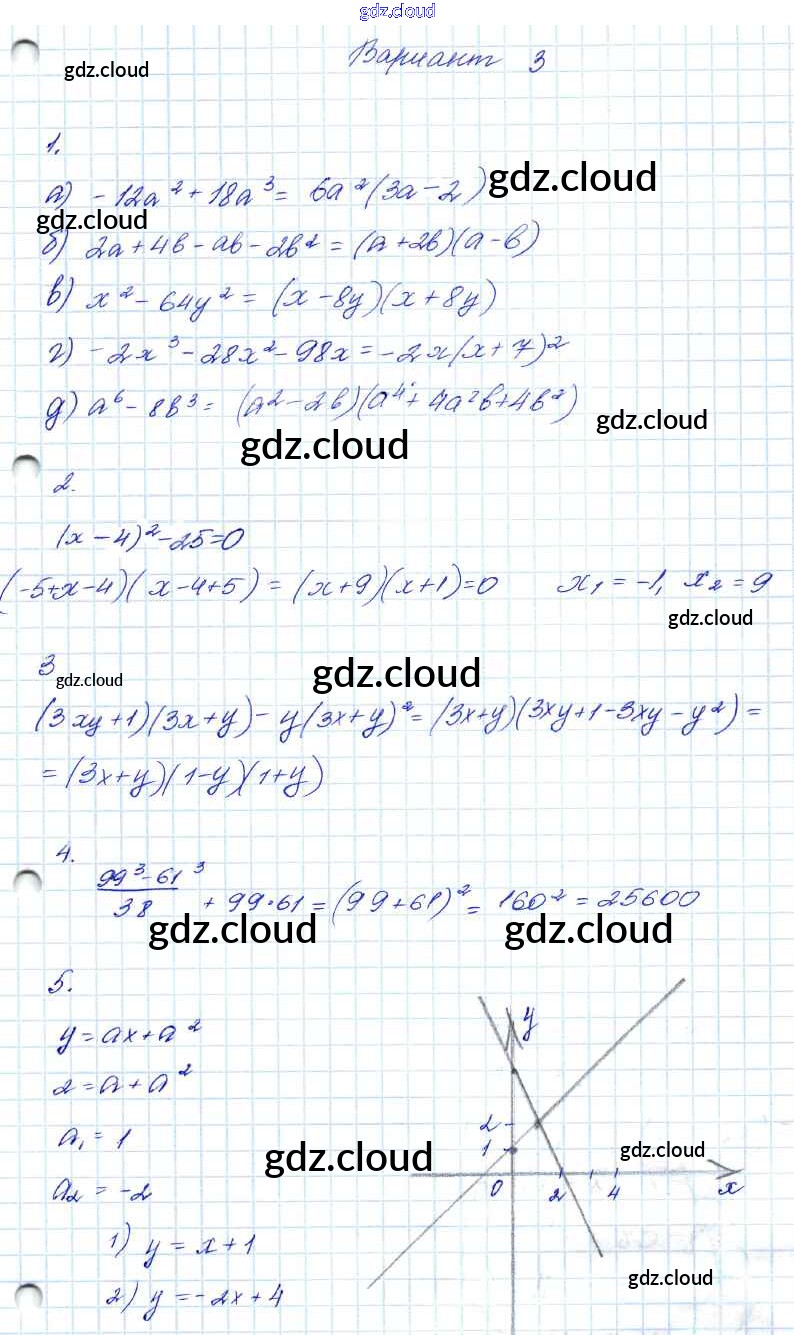 gdz.cloud
Вариант 3
gdz.cloud
1.
а) -12a² + 18a³ = 6a²(3a - 2) gdz.cloud
gdz.cloud
б) 2a + 4b - ab - 2b² = (a + 2b)(a - b)
в) x² - 64y² = (x - 8y)(x + 8y)
г) -2x³ - 28x² - 98x = -2x(x + 7)²
д) a⁶ - 8b³ = (a² - 2b)(a⁴ + 4a²b + 4b²)
gdz.cloud
gdz.cloud
2.
(x - 4)² - 25 = 0
(-5 + x - 4)(x - 4 + 5) = (x + 9)(x + 1) = 0 x₁ = -1, x₂ = 9
gdz.cloud
3
gdz.cloud
gdz.cloud
(3xy + 1)(3x + y) - y(3x + y)² = (3x + y)(3xy + 1 - 3xy - y²) =
= (3x + y)(1 - y)(1 + y)
4.
(99³ - 61³)/38 + 99·61 = (99 + 61)² = 160² = 25600
gdz.cloud gdz.cloud
5.
y = ax + a²
2 = a + a²
a₁ = 1
a₂ = -2
1) y = x + 1
2) y = -2x + 4
gdz.cloud
y
2
1
gdz.cloud
0 2 4 x
gdz.cloud